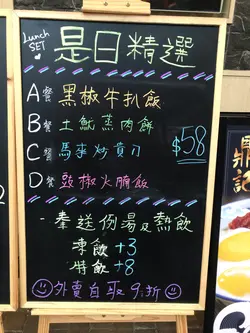 Lunch
SET
是日精選
A餐 黑椒牛扒飯
B餐 土魷蒸肉餅
C餐 馬來炒貴刁
D餐 豉椒火腩飯
$58
- 奉送例湯及熱飲
凍飲 +3
特飲 +8
外賣自取9折
記